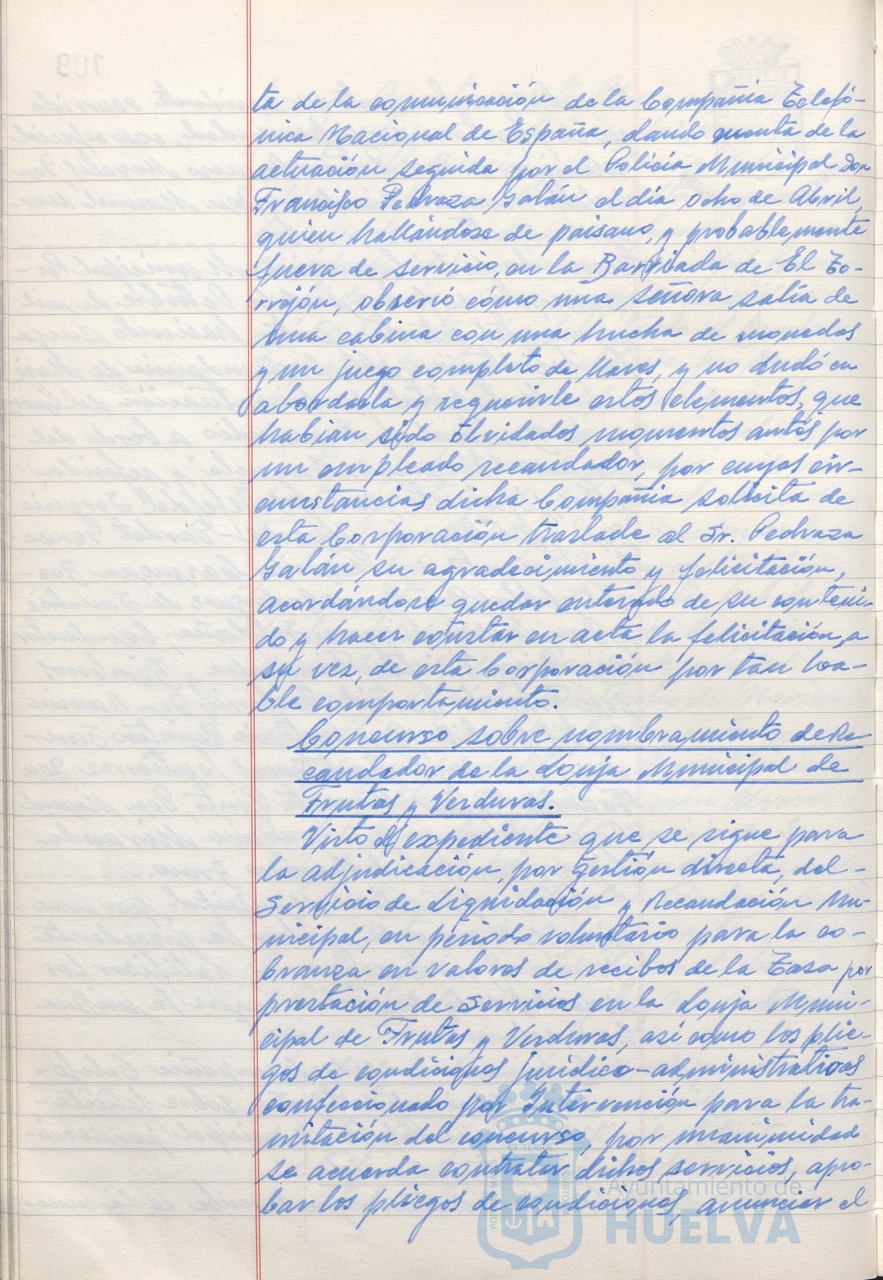 ta de la comunicación de la Compañía Telefó-
nica Nacional de España, dando cuenta de la
actuación seguida por el Policía Municipal Don
Francisco Pedraza Galán el día ocho de Abril,
quien hallándose de paisano, y probablemente
fuera de servicio, en la Barriada de El To-
rrejón, observó cómo una señora salía de
una cabina con una hucha de monedas
y un juego completo de llaves, y no dudó en
abordarla y requerirle estos elementos, que
habían sido olvidados momentos antes por
un empleado recaudador, por cuyas cir-
cunstancias dicha Compañía solicita de
esta Corporación traslade al Sr. Pedraza
Galán su agradecimiento y felicitación,
acordándose quedar enterado de su conteni-
do y hacer constar en acta la felicitación, a
su vez, de esta Corporación por tan loa-
ble comportamiento.
Concurso sobre nombramiento de Re
caudador de la Lonja Municipal de
Frutas y Verduras.
Visto el expediente que se sigue para
la adjudicación, por gestión directa, del-
Servicio de Liquidación y Recaudación Mu-
nicipal, en período voluntario para la co-
branza en valores de recibos de la Tasa por
prestación de Servicios en la Lonja Muni-
cipal de Frutas y Verduras, así como los plie-
gos de condiciones jurídico-administrativas
confeccionado por Intervención para la tra-
mitación del concurso, por unanimidad
se acuerda contratar dichos servicios, apro-
bar los pliegos de condiciones, anunciar el
Ayuntamiento de
HUELVA